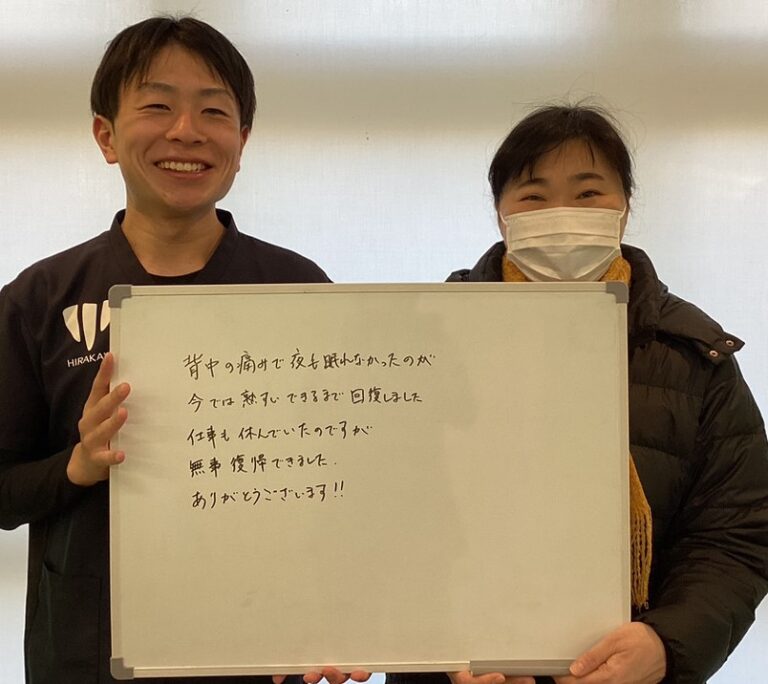 HIRAKA
背中の痛みで夜も眠れなかったのが
今では熟すいできるまで回復しました
仕事も休んでいたのですが
無事復帰できました.
ありがとうございます!!